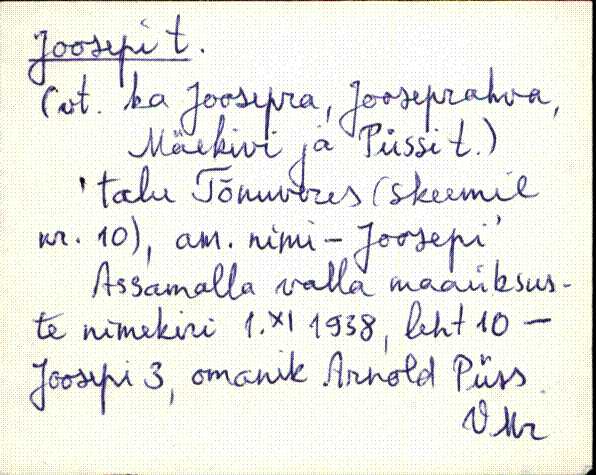 Joosepi t.
(vt. ka Joosepra, Jooseprahva,
Mäekivi ja Püssi t.)
'talu Tõnuveres (skeemil
nr. 10), am. nimi - Joosepi'
Assamalla valla maaüksus-
te nimekiri 1. XI 1938, leht 10 -
Joosepi 3, omanik Arnold Püss
VMr